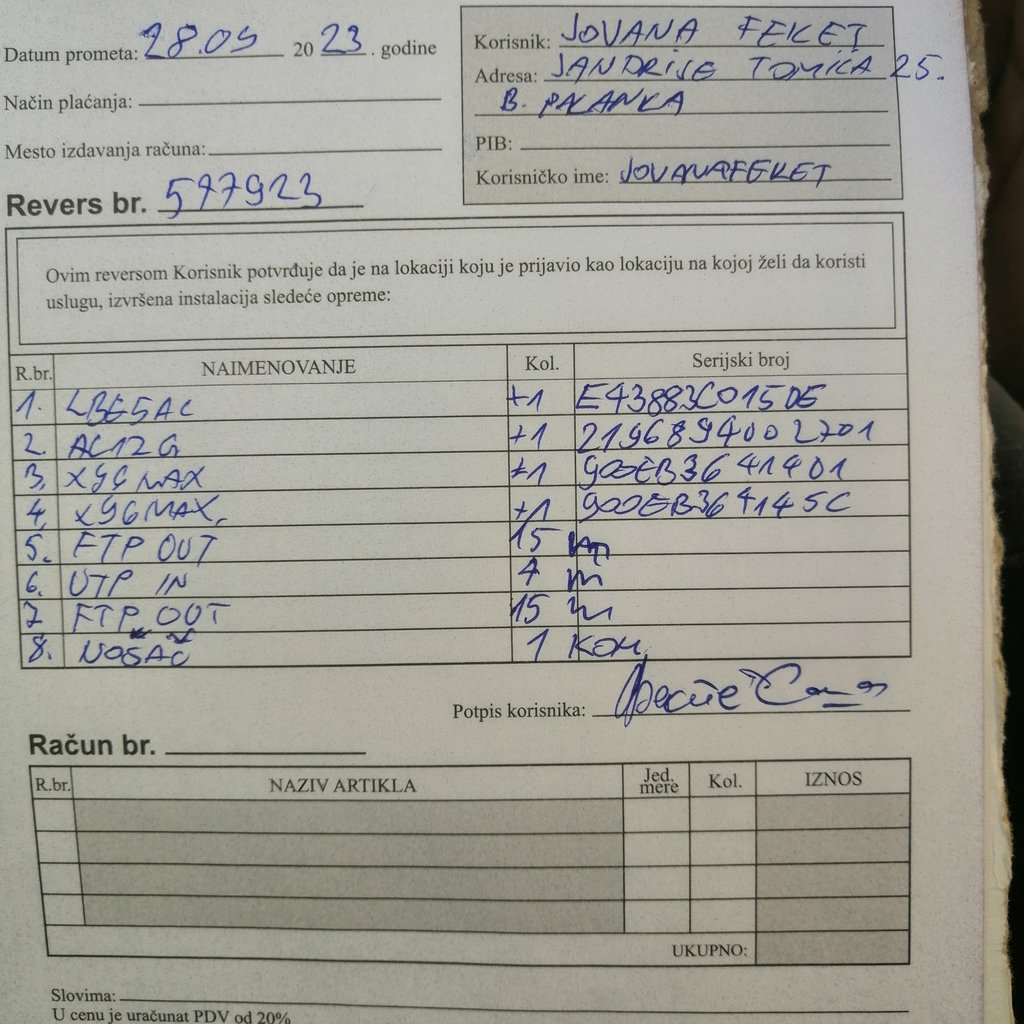 Datum prometa: 28.09 2023. godine
Način plaćanja:
Mesto izdavanja računa:
Korisnik: JOVANA FEKET
Adresa: JANDRIJE TOMIĆA 25.
B. PALANKA
PIB:
Korisničko ime: JOVANAFEKET
Revers br. 577923
Ovim reversom Korisnik potvrđuje da je na lokaciji koju je prijavio kao lokaciju na kojoj želi da koristi
uslugu, izvršena instalacija sledeće opreme:
R.br. NAIMENOVANJE Kol. Serijski broj
1. LBE5AC +1 E43883C015DE
2. AC12G +1 2196894002701
3. X96 MAX +1 900EB3641401
4. X96MAX. +1 900EB364145C
5. FTP OUT 15 m
6. UTP IN 7 m
7. FTP OUT 15 m
8. NOSAČ 1 KOM.
Potpis korisnika:
Račun br.
R.br. NAZIV ARTIKLA Jed. mere Kol. IZNOS
UKUPNO:
Slovima:
U cenu je uračunat PDV od 20%